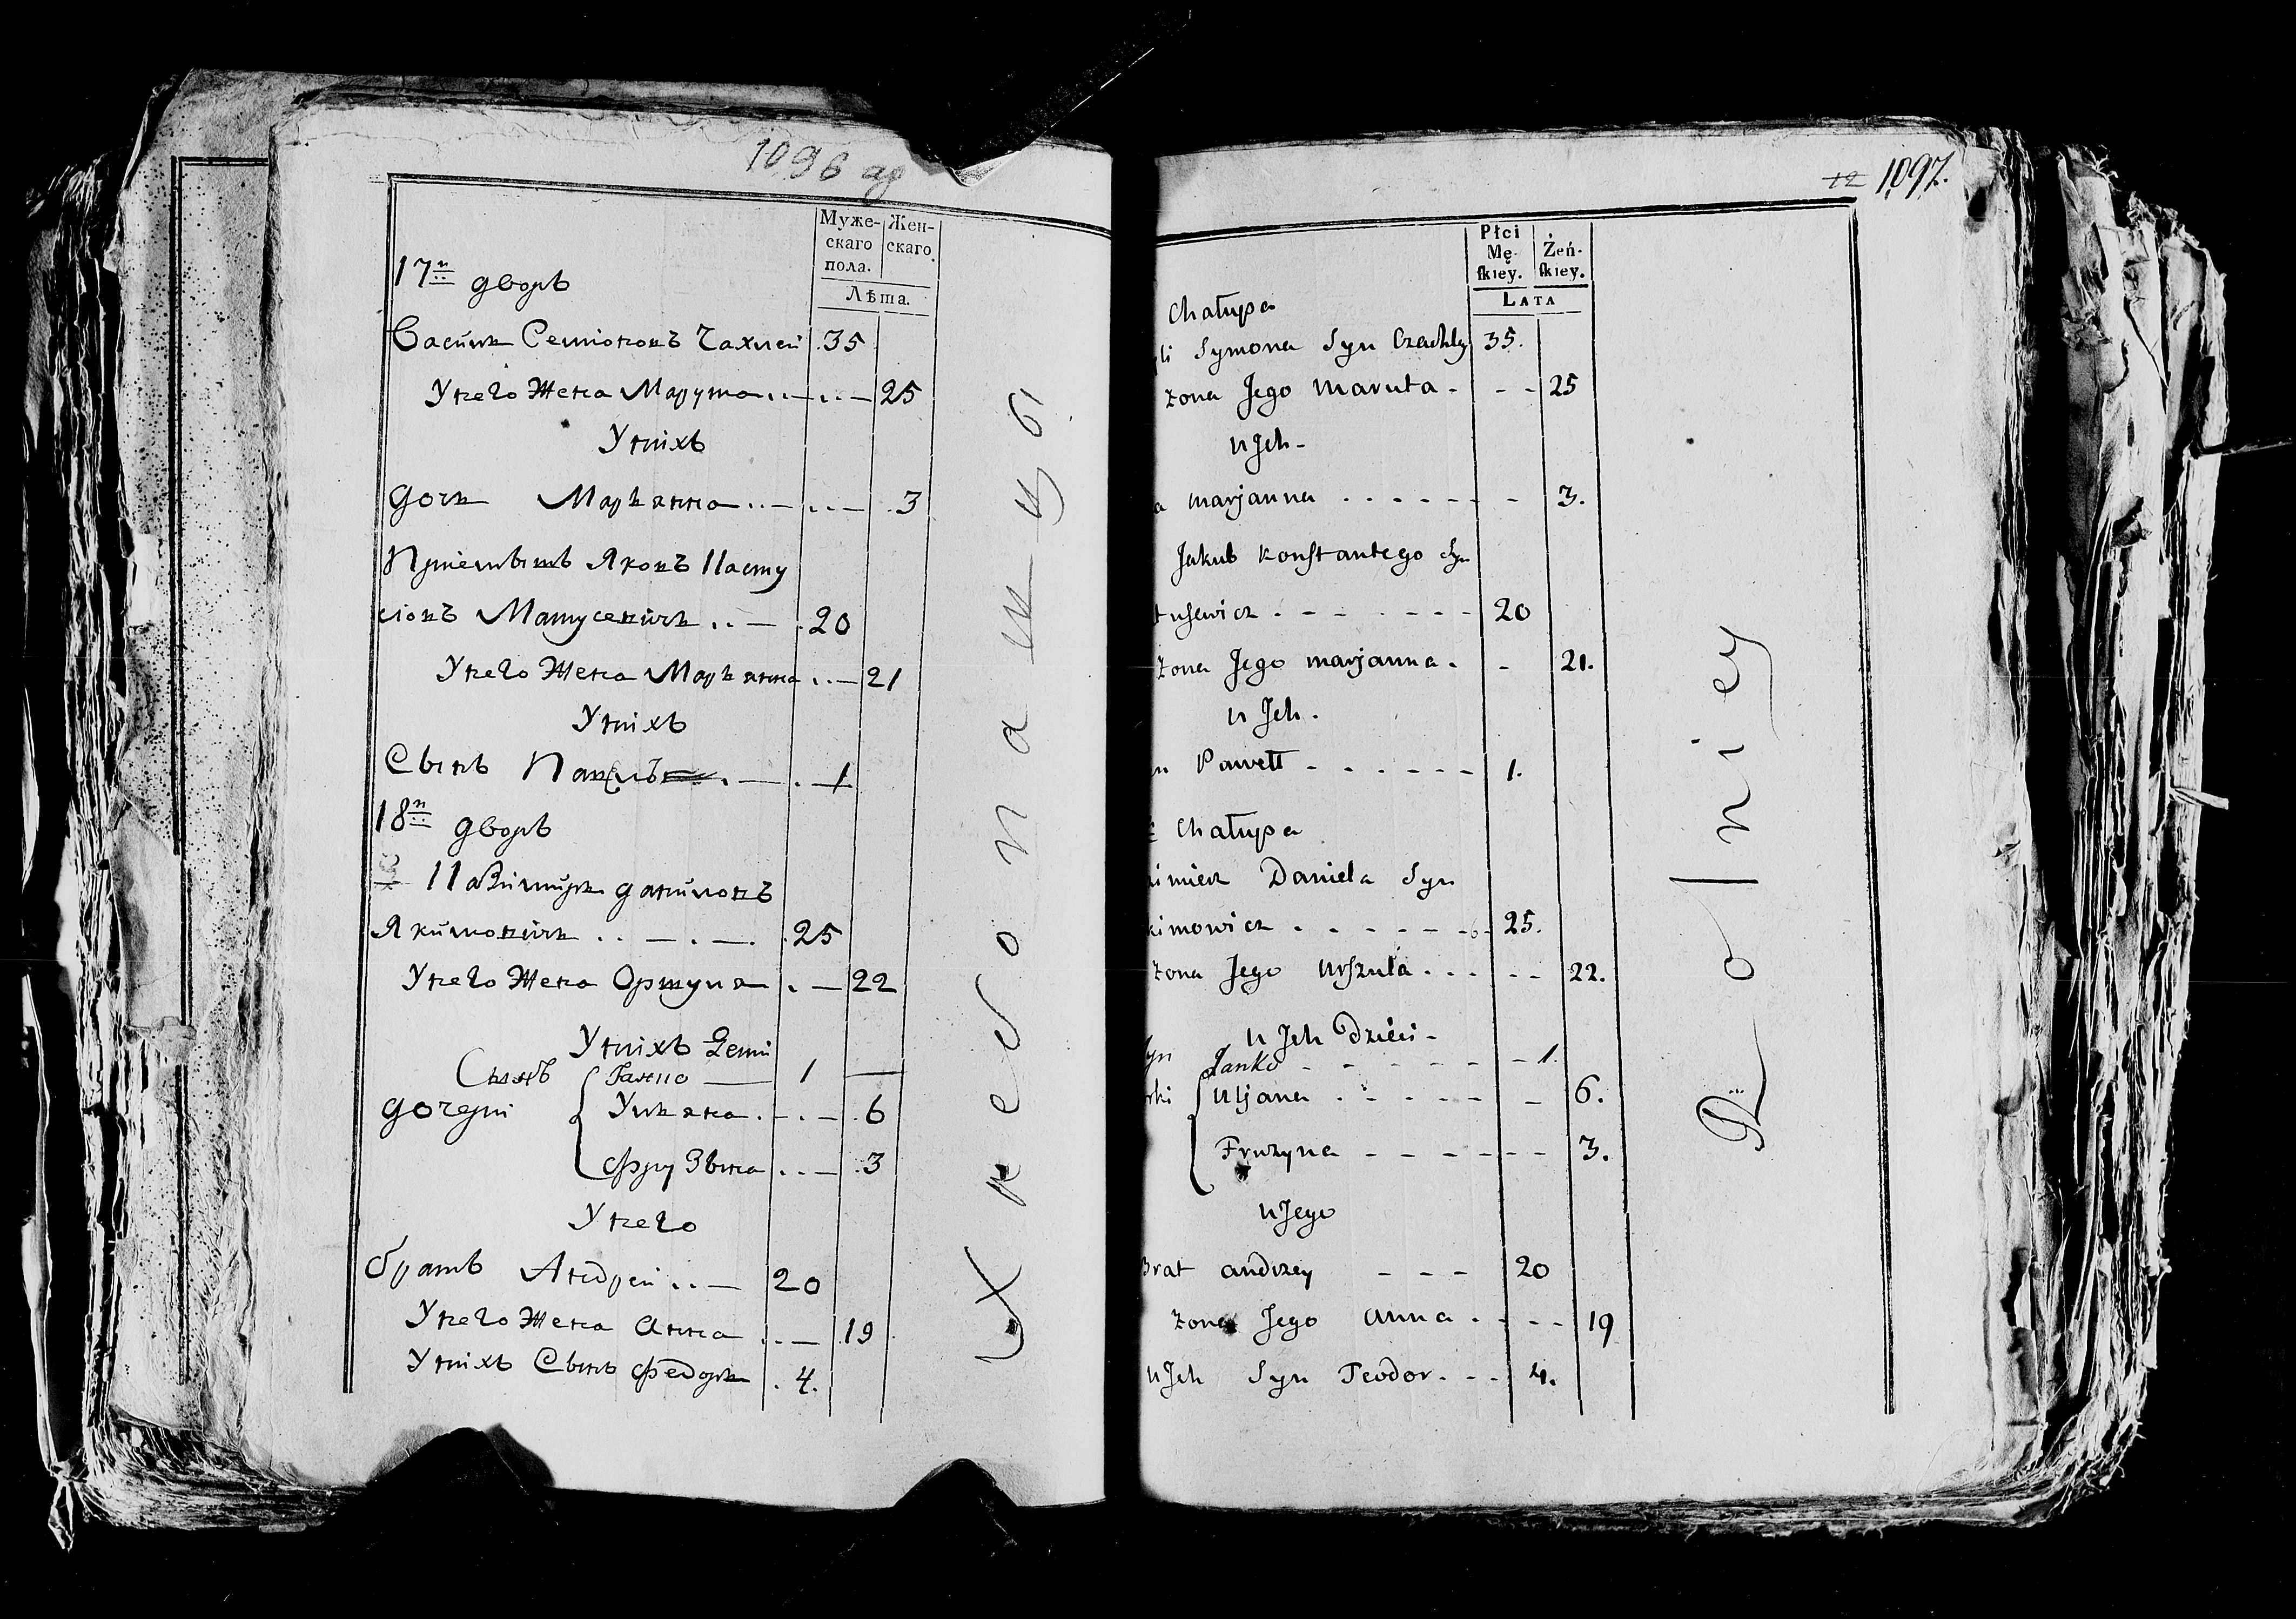 1096 аф
Муже-
скаго
пола.
Жен-
скаго.
Лѣта.
17й дворъ
Василь Семіоновъ Чахлей 35
У него жена Марута 25
У ниxъ
дочь Марьянна 3
Пріемышъ Яковъ Касту
сіовъ Матусевичъ 20
У него жена Марьянна 21
У нихъ
Сынъ Павелъ 1
18й дворъ
Казимиръ данилонъ
Якимовичь 25
У него жена Оршуля 22
У нихъ дети
Сынъ Ганко 1
дочери Ульяна 6
Фрузына 3
У него
братъ Андрей 20
У него жена Анна 19
У нихъ Сынъ Федоръ 4.
12 1097.
Płci
Mę-
skiey.
Żeń-
skiey.
LATA
Chałupa
li Symona Syn Czachley 35.
żona Jego Maruta 25
u Jch
a Marjanna 3.
Jakub Konstantego Syn
tusewicz 20
żona Jego Marjanna 21.
u Jch.
n Pawełł 1.
Chałupa
imierz Daniela Syn
kimowicz 25.
żona Jego Urszula 22.
u Jch Dzieci
yn Janko 1.
rki Uljana 6.
Fruzyna 3.
u Jego
Brat Andrzey 20
żona Jego Anna 19
u Jch Syn Teodor 4.
Rolniey